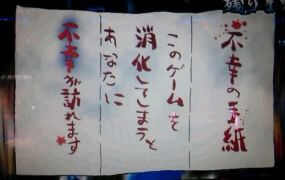 不幸の手紙
このゲームを
消化してしまうと
あなたに
不幸が訪れます